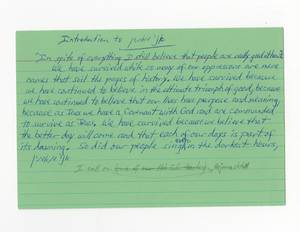 Introduction to אני מאמין
"In spite of everything I still believe that people are really good at heart."
We have survived while so many of our oppressors are mere
names that soil the pages of history. We have survived because
we have continued to believe in the ultimate triumph of good, because
we have continued to believe that our lives have purpose and meaning,
because as Jews we have a Covenant with God and are commanded
to survive as Jews. We have survived because we believe that
the better day will come and that each of our days is part of
its dawning. So did our people sing even in the darkest hours,
אני מאמין
I call on